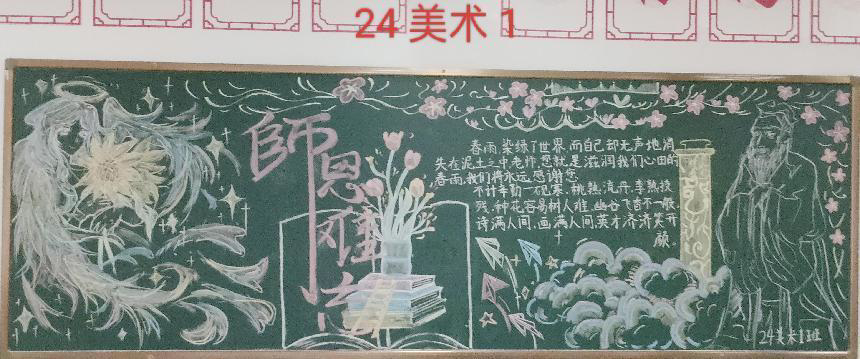 24 美术 1
師恩难忘
春雨,染绿了世界,而自己却无声地消
失在泥土之中,老师,您就是滋润我们心田的
春雨,我们将永远感谢您。
不计辛勤一砚寒,桃熟流丹,李熟枝
残,种花容易树人难。幽谷飞香不一般,
诗满人间,画满人间,英才济济笑开
颜。
24美术1班